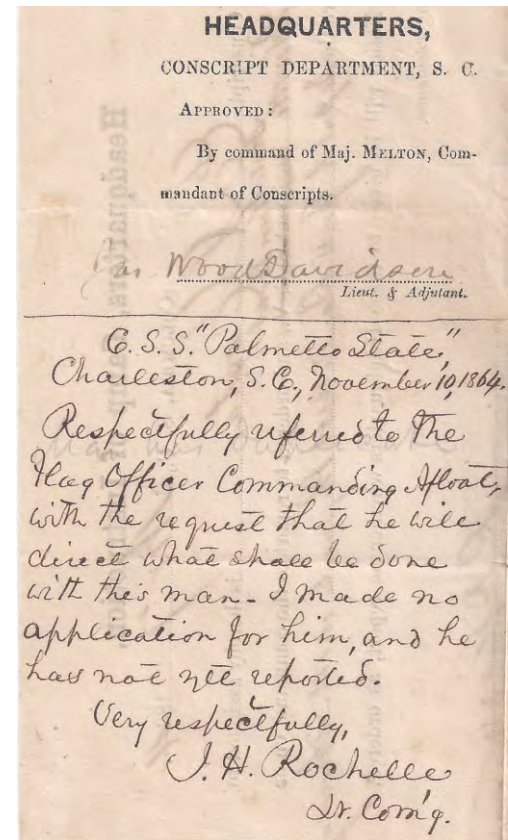 HEADQUARTERS,
CONSCRIPT DEPARTMENT, S. C.
APPROVED:
By command of Maj. MELTON, Com-
mandant of Conscripts.
Jas Wood Davidson
Lieut. & Adjutant.
C. S. S. "Palmetto State,"
Charleston, S.C., November 10, 1864.
Respectfully referred to the
Flag Officer Commanding Afloat,
with the request that he will
direct what shall be done
with this man - I made no
application for him, and he
has not yet reported.
Very respectfully,
J. H. Rochelle
Lt. Com'g.